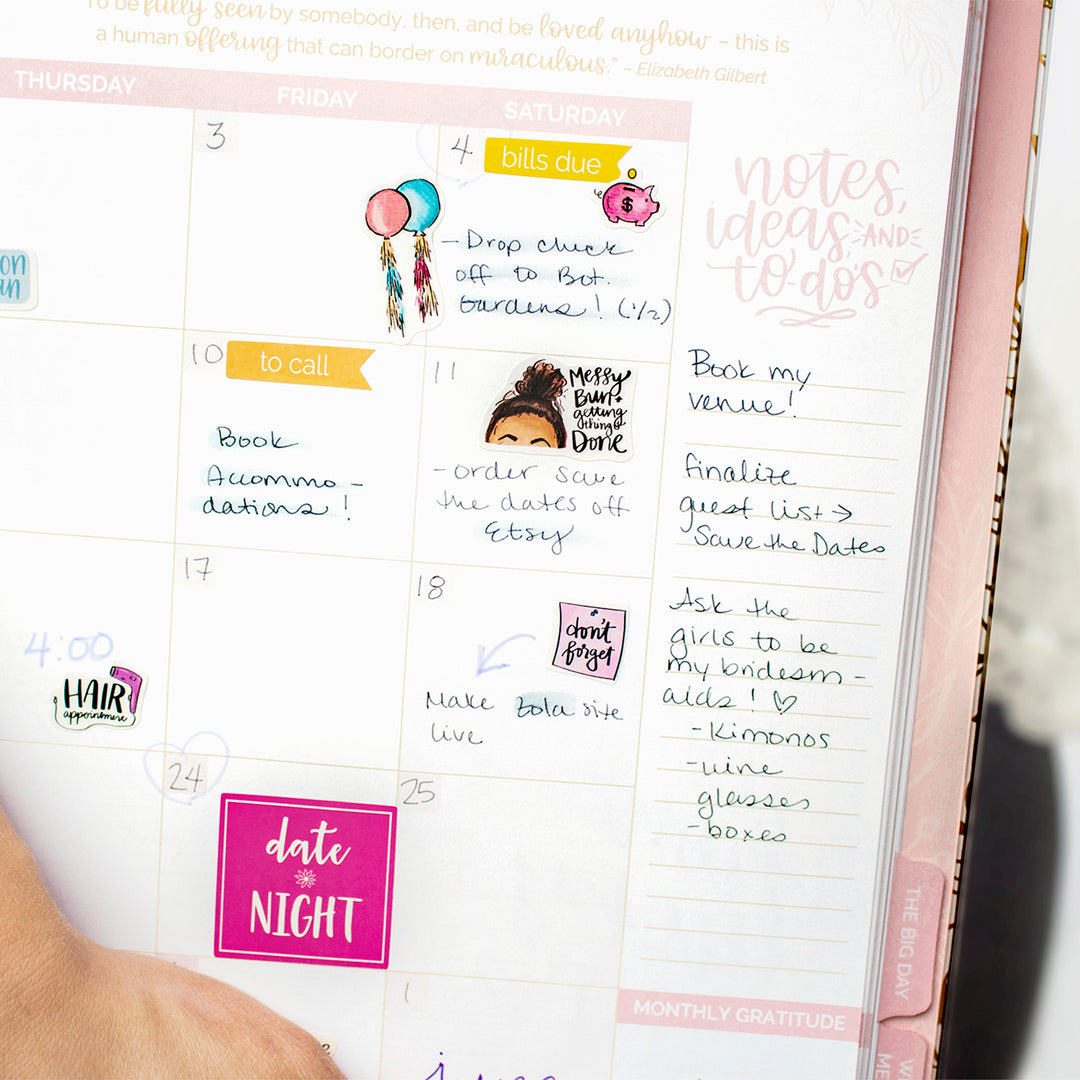 To be fully seen by somebody, then, and be loved anyhow – this is
a human offering that can border on miraculous." – Elizabeth Gilbert
THURSDAY
FRIDAY
SATURDAY
3
4
bills due
$
- Drop check
off to Bot.
Gardens! (1/2)
notes,
ideas AND
to do's
on
an
10
to call
Book
Accommo-
dations!
11
Messy
Bun
getting
things
Done
- order save
the dates off
Etsy
Book my
venue!
finalize
guest list →
Save the Dates
Ask the
girls to be
my bridesm-
aids! ♡
- Kimonos
- wine
glasses
- boxes
4:00
HAIR
appointment
17
18
don't
forget
Make Zola site
live
24
date
NIGHT
25
1
THE BIG DAY
MONTHLY GRATITUDE